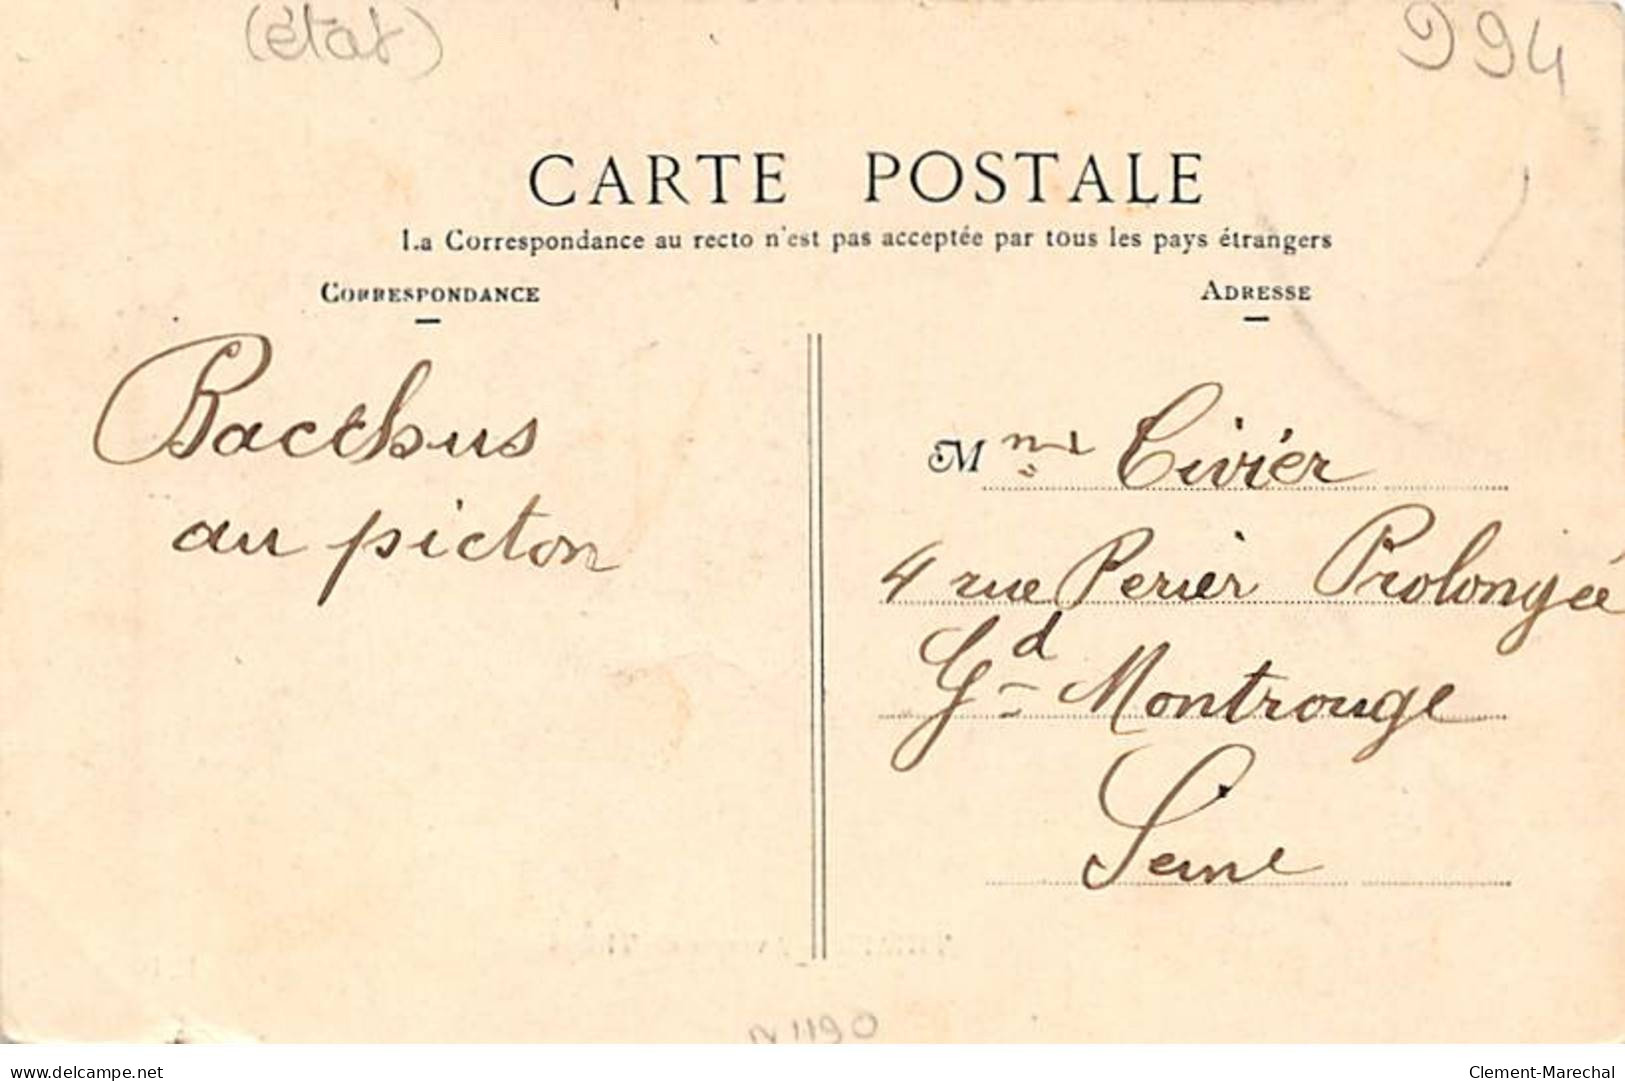 (état)
994
CARTE POSTALE
La Correspondance au recto n'est pas acceptée par tous les pays étrangers
CORRESPONDANCE
ADRESSE
Bacchus
au picton
Mme Civiér
4 rue Perier Prolongée
Gd Montrouge
Seine
N 1190
See more on delcampe.net
Clement-Marechal